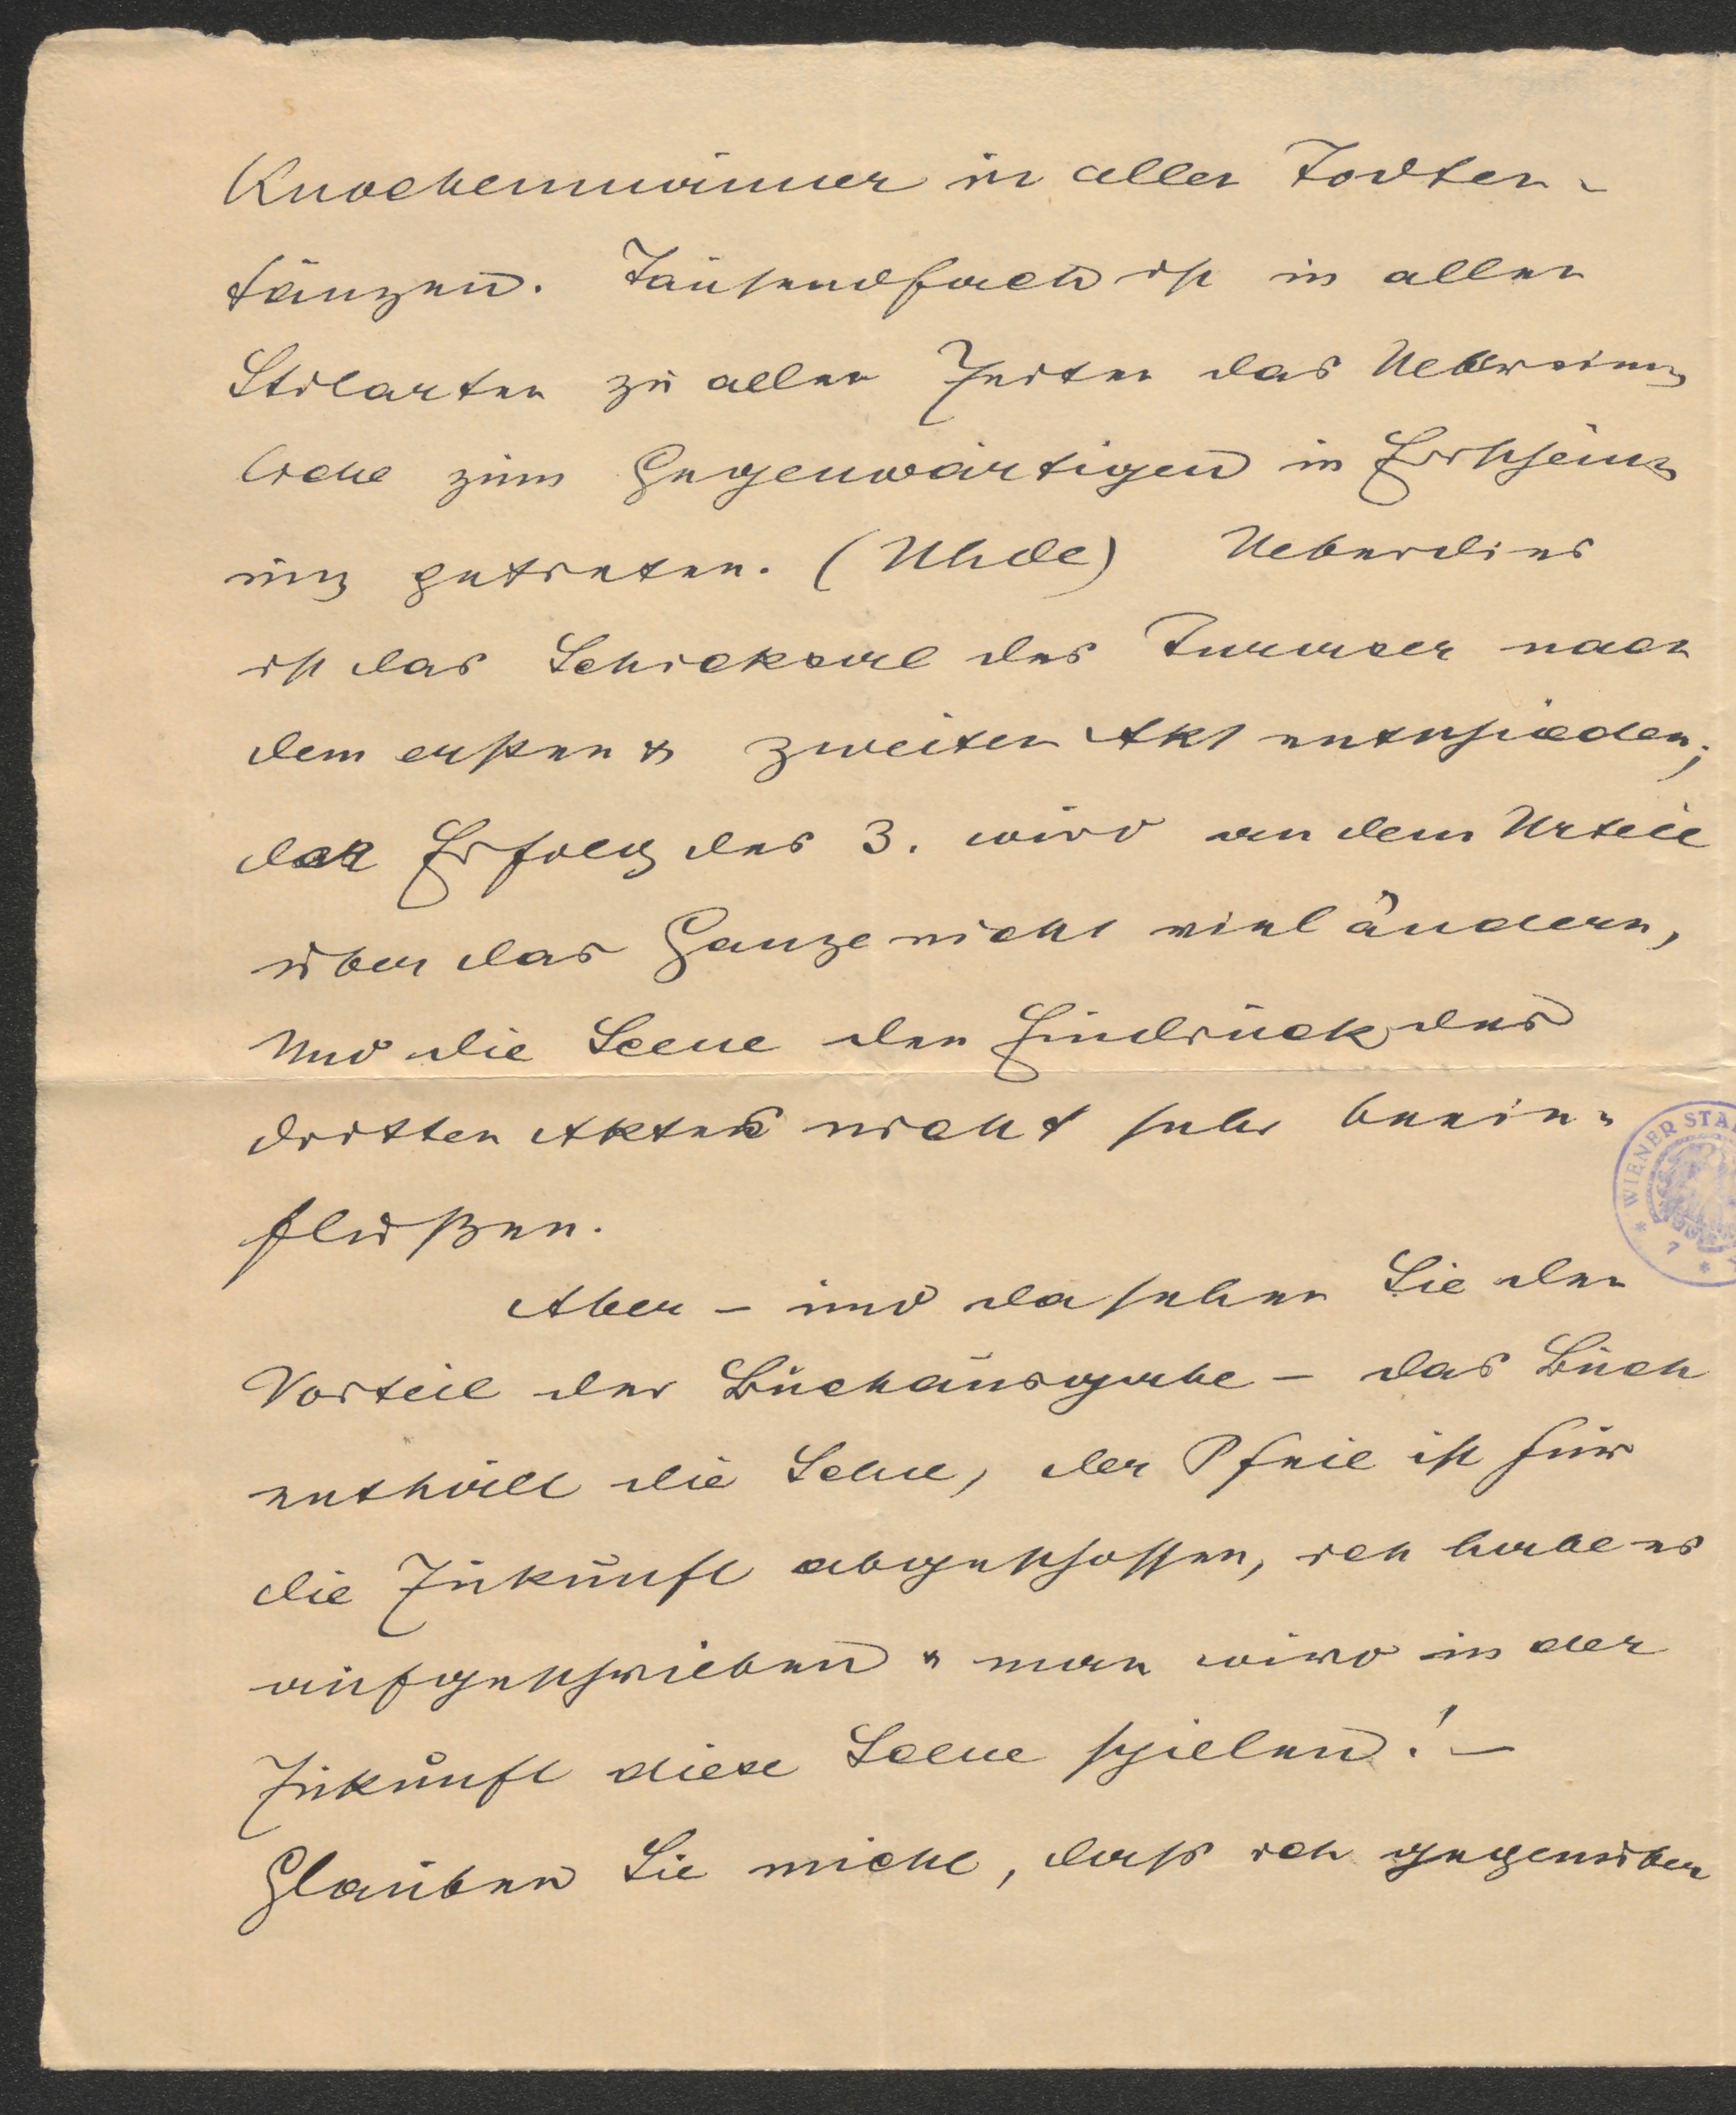 Knochenmänner in allen Todten-
tänzen. Tausendfach ist in allen
Stilarten zu allen Zeiten das Uebersinn
liche zum Gegenwärtigen in Erscheinu
ung getreten. (Uhde) Ueberdies
ist das Schicksal des Turmser nach
dem ersten & zweiten Akt entschieden;
der Erfolg des 3. wird an dem Urteil
über das Ganze nicht viel ändern,
Und die Scene den Eindruck des
dritten Aktes nicht sehr beein-
flußen.
Aber – und da sehen Sie den
Vorteil der Buchausgabe – das Buch
enthält die Scene, der Pfeil ist für
die Zukunft abgeschossen, ich habe es
aufgeschrieben & man wird in der
Zukunft diese Scene spielen! –
Glauben Sie nicht, dass ich gegenüber
WIENER STA